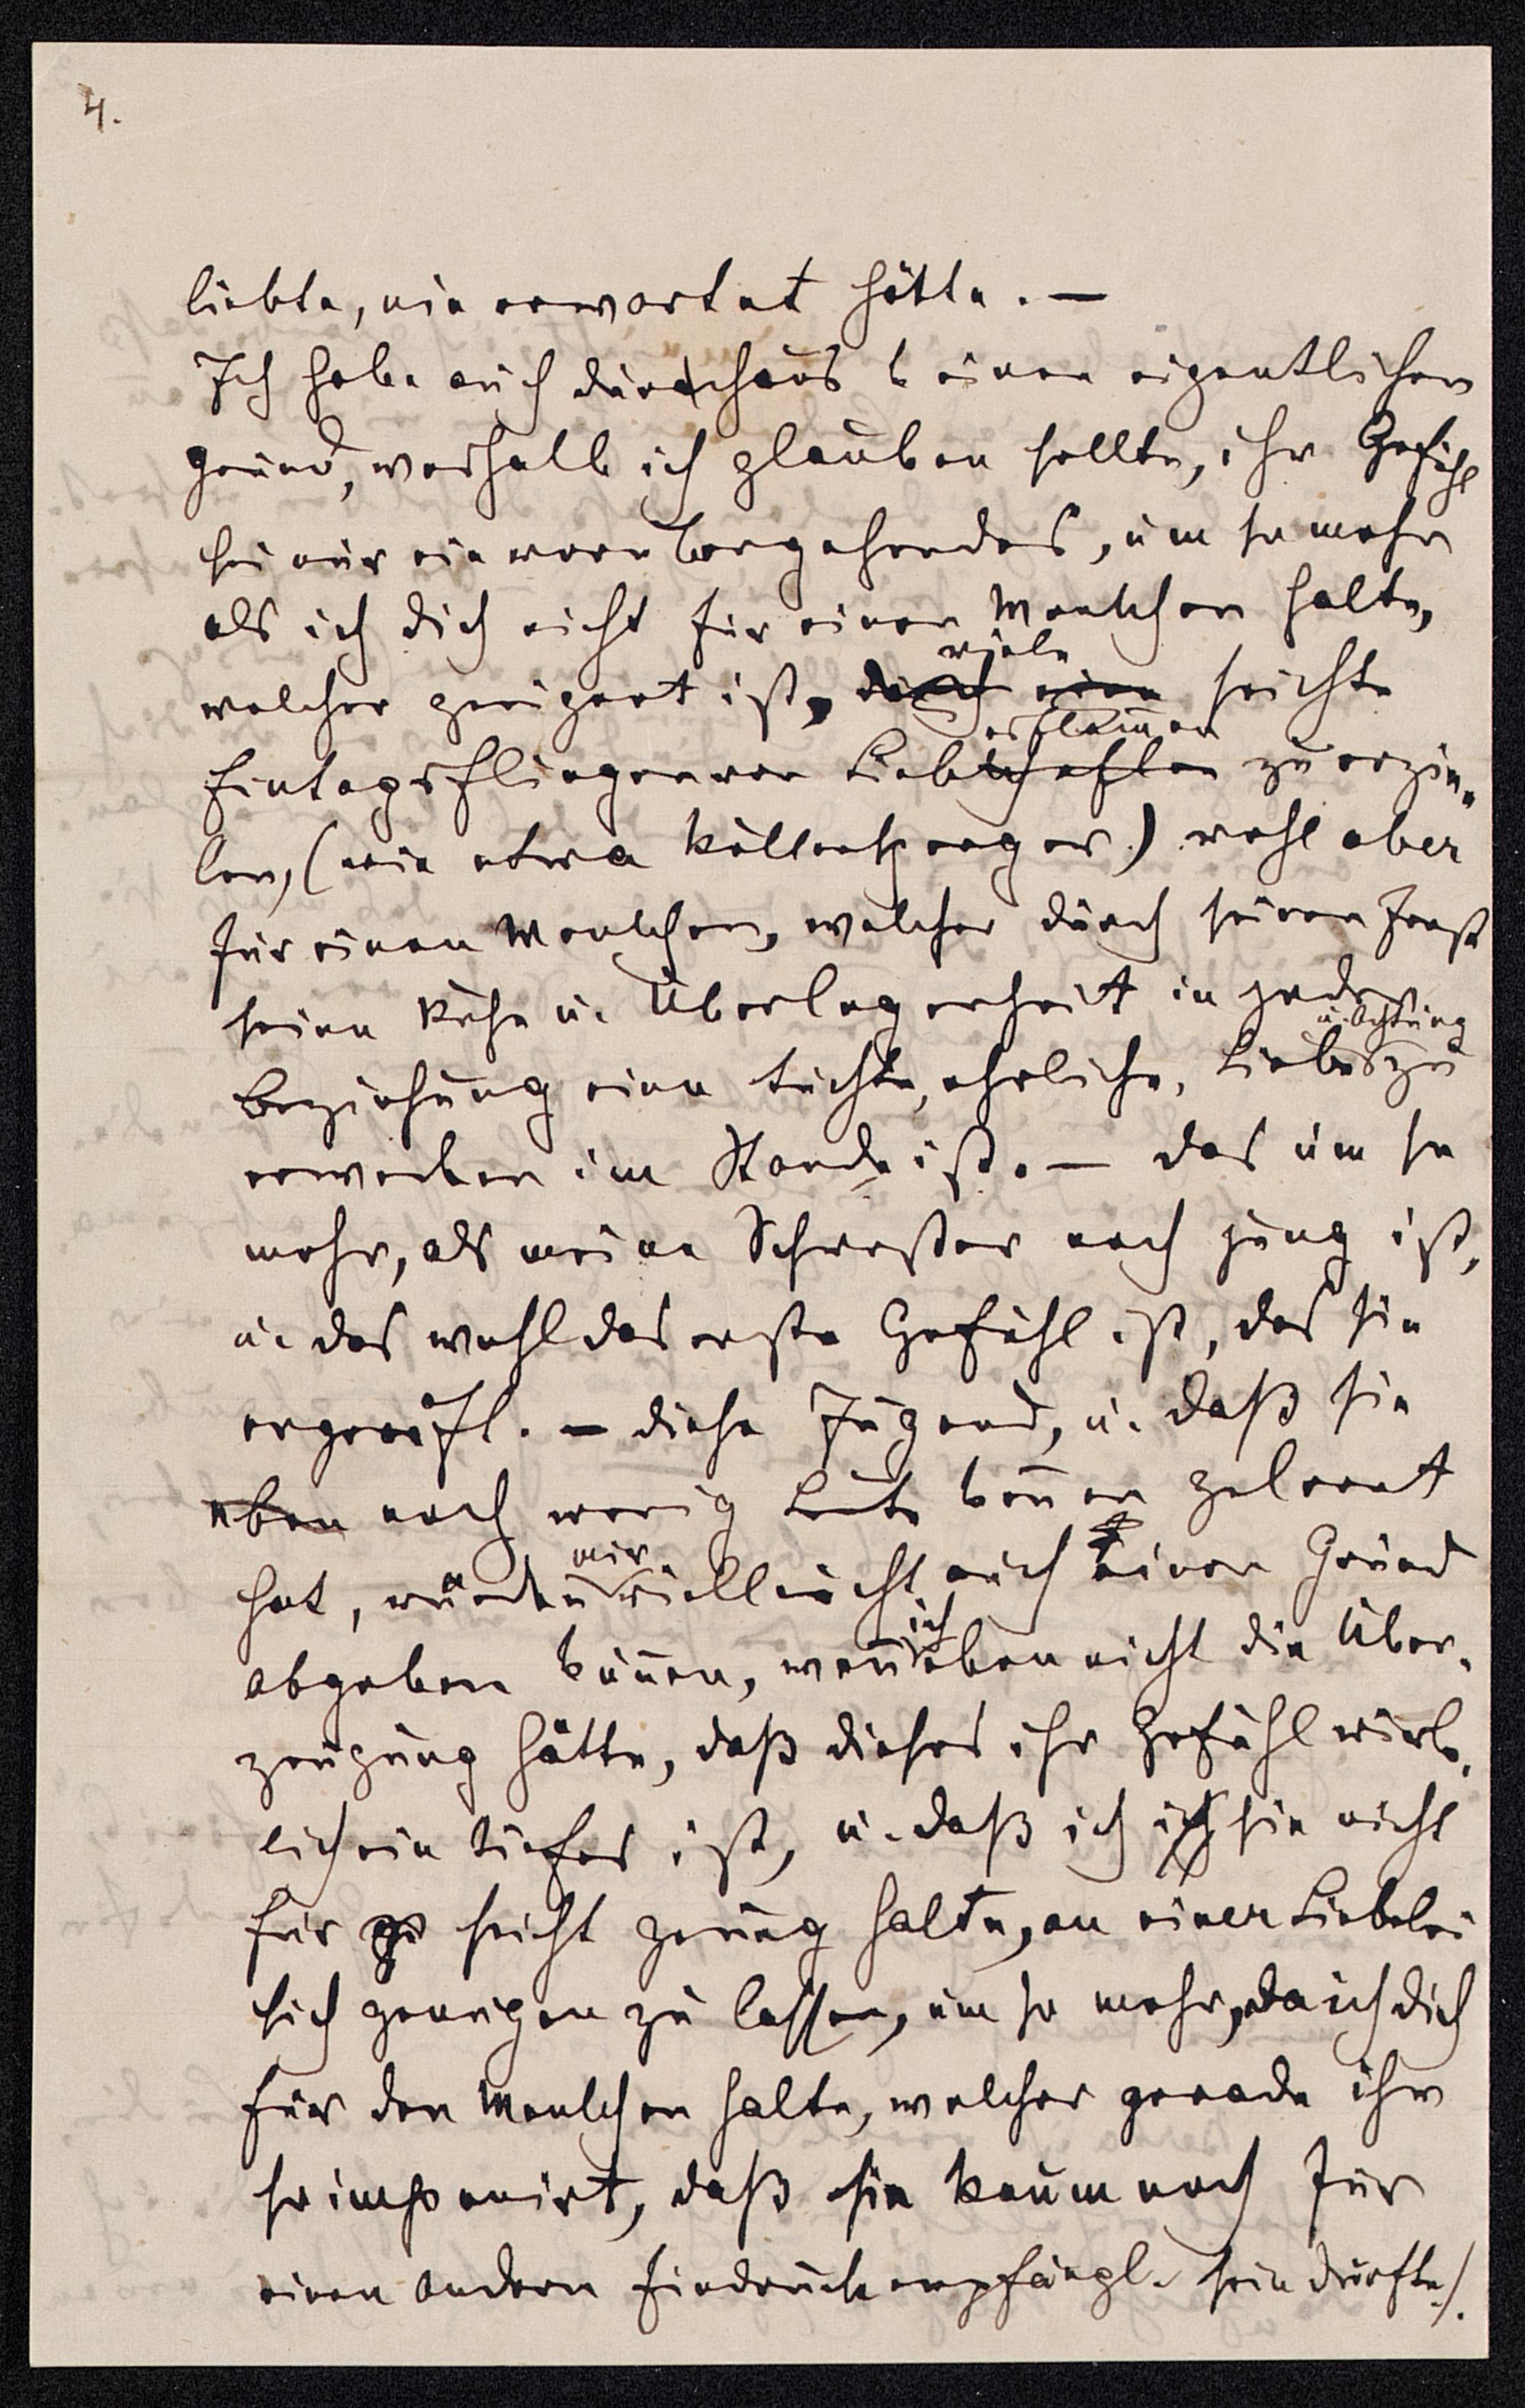 4.
liebte, nie erwartet hätte. —
Ich habe auch durchaus keinen eigentlichen
Grund, weshalb ich glauben sollte, ihr Gefühl
sei nur ein vorrübergehendes, um so mehr
als ich dich nicht für einen Menschen halte,
viele
welcher geeignet ist, durch eine seichte
Eintagsfliegen von Liebschaften zu erzie„
len, (wie etwa Kollensperger) wohl aber
für einen Menschen, welcher durch seinen Ernst
seine Ruhe u. Überlegenheit in jeder
u. Achtung
Beziehung eine tiefste, ehrliche, Liebe zu
erwerben im Stande ist. — das um so
mehr, als meine Schwester noch jung ist,
u. das wohl das erste Gefühl ist, das sie
ergreift. — diese Jugend, u. daß sie
eben noch wenig Leute kennen gelernt
mir
hat, würde vielleicht auch einen Grund
ich
abgeben können, wenn eben nicht die Über„
zeugung hätte, daß dieses ihr Gefühl wirk„
lich ein tiefes ist, u. daß ich ich sie nicht
für zu seicht genug halte, an einer Liebelei
sich genügen zu lassen, um so mehr, da ich dich
für den Menschen halte, welcher gerade ihr
so imponirt, daß sie kaum noch für
einen andern Eindruck empfängl. sein dürfte/.